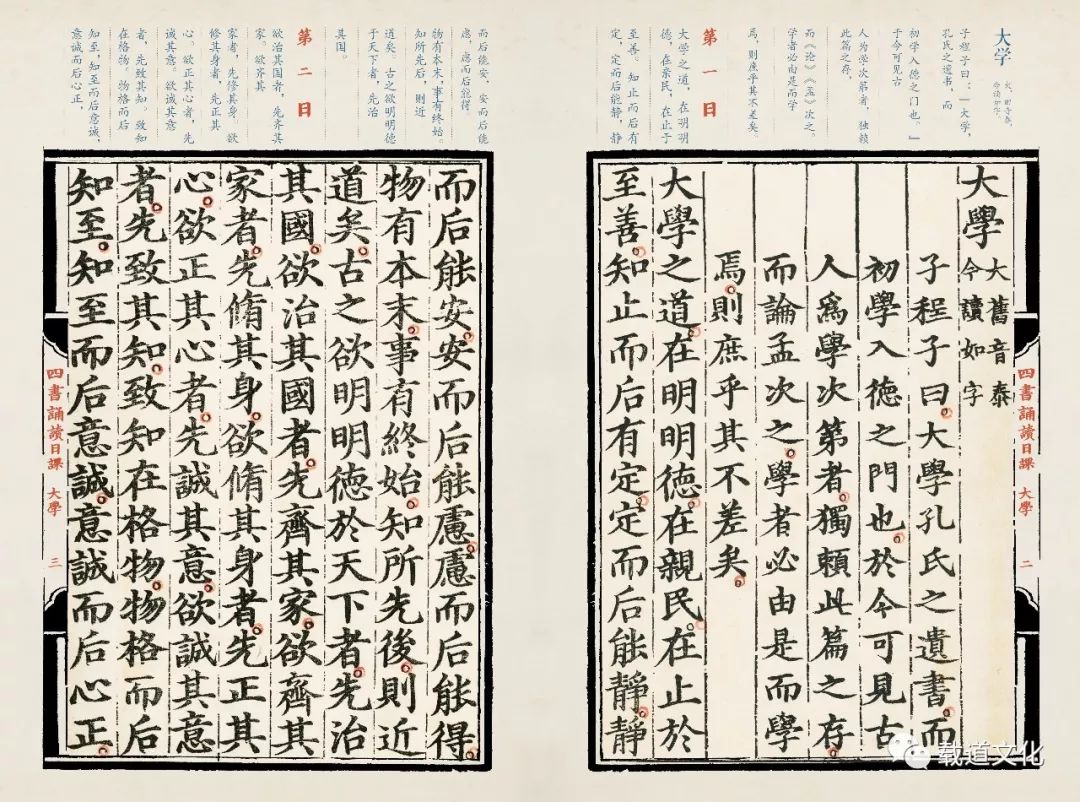 大学
大,旧音泰,
今读如字。
子程子曰:“大学,
孔氏之遗书,而
初学入德之门也。』
于今可见古
人为学次第者,独赖
此篇之存,
而《论》《孟》次之。
学者必由是而学
焉,则庶乎其不差矣。
第一日
大学之道,在明明
德,在亲民,在止于
至善。知止而后有
定,定而后能静,静
大學
大舊音泰
今讀如字
子程子曰。大學孔氏之遺書。而
初學入德之門也。於今可見古
人爲學次第者。獨頼此篇之存。
而論孟次之。學者必由是而學
焉。則庶乎其不差矣。
大學之道。在明明德。在親民。在止於
至善。知止而后有定。定而后能靜。靜
四書誦讀日課 大學 二
而后能安,安而后能
虑,虑而后能得。
物有本末,事有终始。
知所先后,则近
道矣。古之欲明明德
于天下者,先治
其国。
第二日
欲治其国者,先齐其
家。欲齐其
家者,先修其身。欲
修其身者,先正其
心。欲正其心者,先
诚其意。欲诚其意
者,先致其知。致知
在格物。物格而后
知至,知至而后意诚,
意诚而后心正,
而后能安。安而后能慮。慮而后能得。
物有本末。事有終始。知所先後。則近
道矣。古之欲明明德於天下者。先治
其國。欲治其國者。先齊其家。欲齊其
家者。先脩其身。欲脩其身者。先正其
心。欲正其心者。先誠其意。欲誠其意
者。先致其知。致知在格物。物格而后
知至。知至而后意誠。意誠而后心正。
四書誦讀日課 大學 三
载道文化